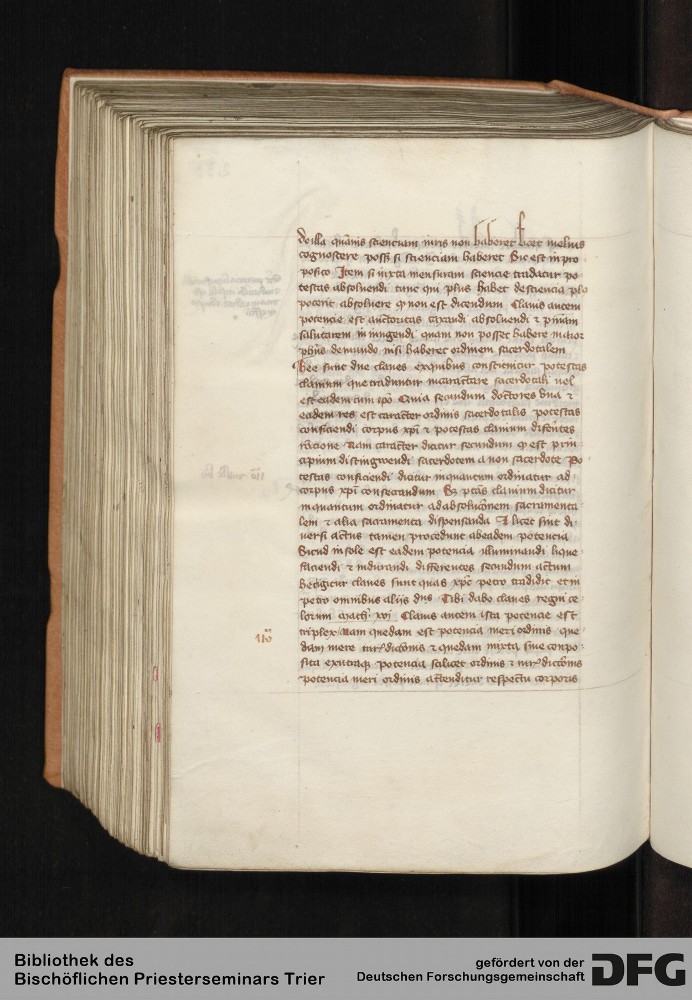 de illa quāuis scienciam iuris non haberet licet melius
cognoscere poss3 si scienciam haberet Sic est in pro
posito Item si iuxta mensuram sciencie tradatur po
testas absoluendi tunc qui plus habet de sciencia plo
poterit absoluere qp non est dicendum Clauis autem
potencie est auctoritas taxandi absoluendi et pīniam
salutarem iniungendi quam non posset habere
de mundo nisi haberet ordinem sacerdotalem
Hee sunt due claues ex quibus constituitur potestas
clauium que traduntur in caractare sacerdotali uel
est eadem cum ipō Quia secundum doctores vna et
eadem res est caracter ordinis sacerdotalis potestas
conficiendi corpus xpī et potestas clauium differētes
racione Nam caracter dicitur secundum qp est prin
cipium distingwendi sacerdotem a non sacerdote Po
testas conficiendi dicitur in quantum ordinatur ad
corpus xpī consecrandum S3 ptās clauium dicitur
in quantum ordinatur ad absoluc̄onem sacramenta
lem et alia sacramenta dispensanda Et licet sint di
uersi actus tamen procedunt ab eadem potencia
Sicud in sole est eadem potencia illuminandi lique
faciendi et indurandi differentes secundum actum
hee igitur claues sunt quas xpc petro tradidit et in
petro omnibus alijs dns Tibi dabo claues regni ce
lorum math' xvj Clauis autem ista potencie est
110
triplex Nam quedam est potencia meri ordinis que
dam mere iurisdictōnis et quedam mixta siue conpo
sita ex utraq3 potencia scilicet ordinis et iurisdictōnis
potencia meri ordinis attenditur respectu corporis
Bibliothek des
Bischöflichen Priesterseminars Trier
gefördert von der
Deutschen Forschungsgemeinschaft
DFG